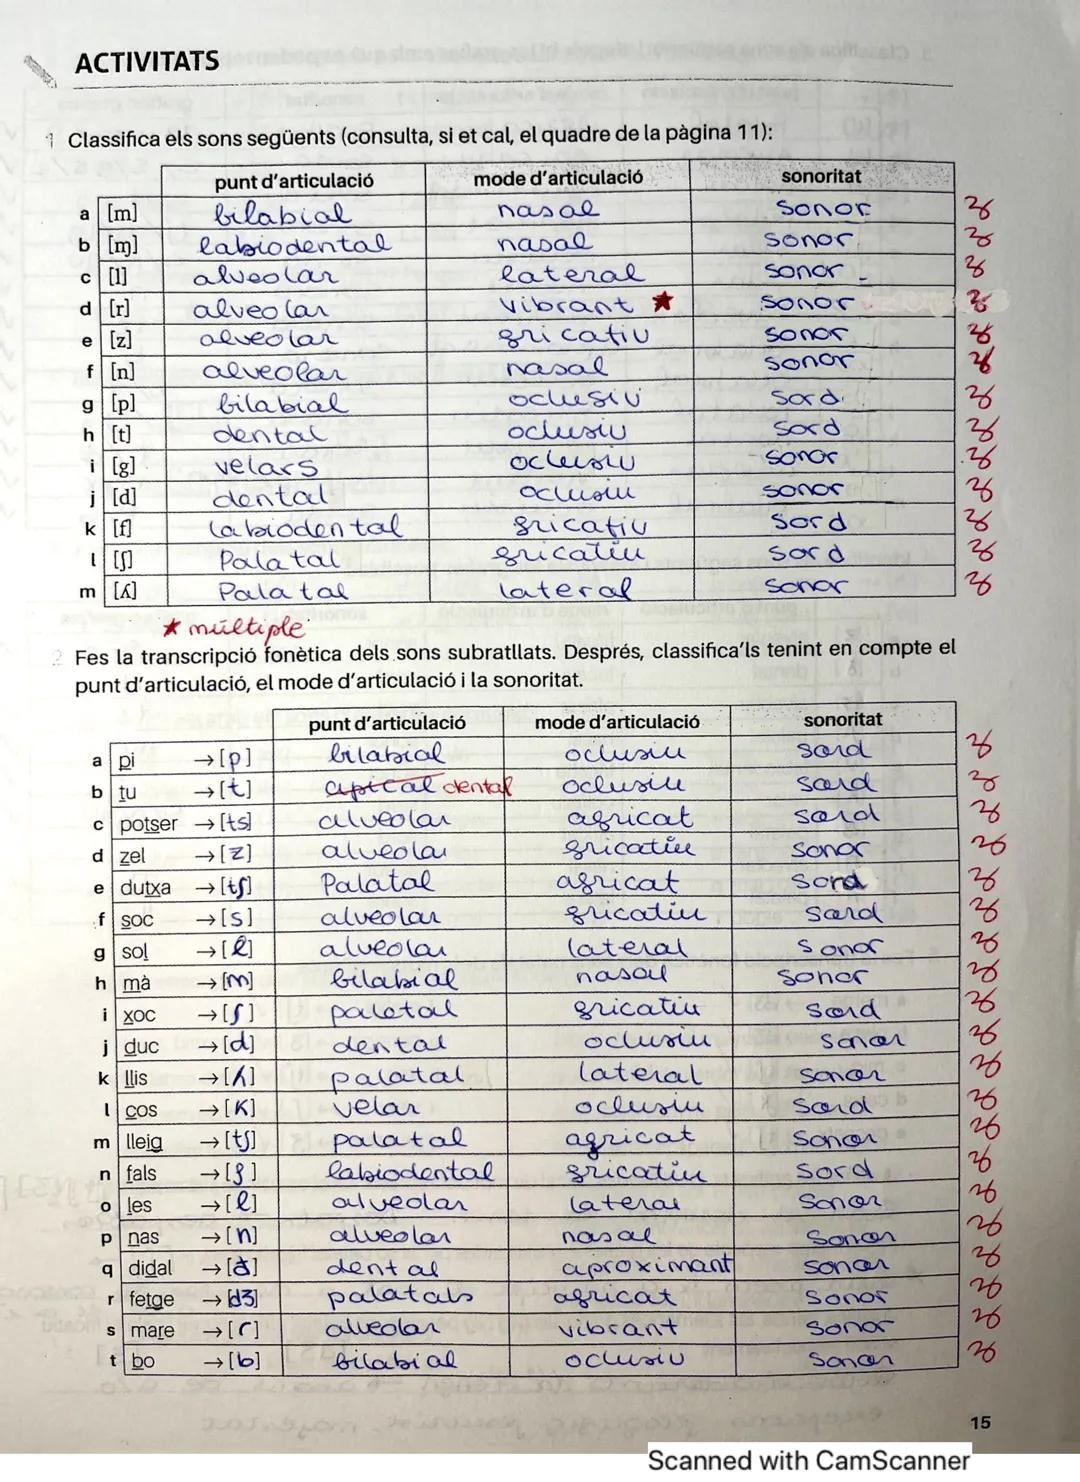 ACTIVITATS
1 Classifica els sons següents (consulta, si et cal, el quadre de la pàgina 11):
punt d'articulació mode d'articulació sonoritat
a [m] bilabial nasal sonor
b [ɱ] labiodental nasal sonor
c [l] alveolar lateral sonor
d [r] alveolar vibrant ★ sonor
e [z] alveolar fricatiu sonor
f [n] alveolar nasal sonor
g [p] bilabial oclusiu sord
h [t] dental oclusiu sord
i [g] velars oclusiu sonor
j [d] dental oclusiu sonor
k [f] labiodental fricatiu sord
l [ʃ] Palatal fricatiu sord
m [ʎ] Palatal lateral sonor
★ múltiple
2 Fes la transcripció fonètica dels sons subratllats. Després, classifica'ls tenint en compte el
punt d'articulació, el mode d'articulació i la sonoritat.
punt d'articulació mode d'articulació sonoritat
a pi →[p] bilabial oclusiu sord
b tu →[t] apical dental oclusiu sord
c potser →[ts] alveolar africat sord
d zel →[z] alveolar fricatiu sonor
e dutxa →[tʃ] Palatal africat sord
f soc →[s] alveolar fricatiu sord
g sol →[l] alveolar lateral sonor
h mà →[m] bilabial nasal sonor
i xoc →[ʃ] palatal fricatiu sord
j duc →[d] dental oclusiu sonor
k llis →[ʎ] palatal lateral sonor
l cos →[K] velar oclusiu sord
m lleig →[tʃ] palatal africat sonor
n fals →[f] labiodental fricatiu sord
o les →[l] alveolar lateral sonor
p nas →[n] alveolar nasal sonor
q didal →[ð] dental aproximant sonor
r fetge →[dʒ] palatals africat sonor
s mare →[ɾ] alveolar vibrant sonor
t bo →[b] bilabial oclusiu sonor
15
Scanned with CamScanner